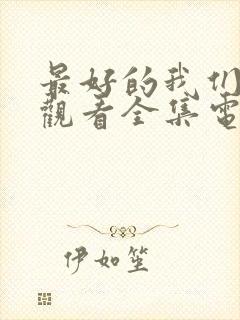 最好的我们
觀看全集電
伊如笙